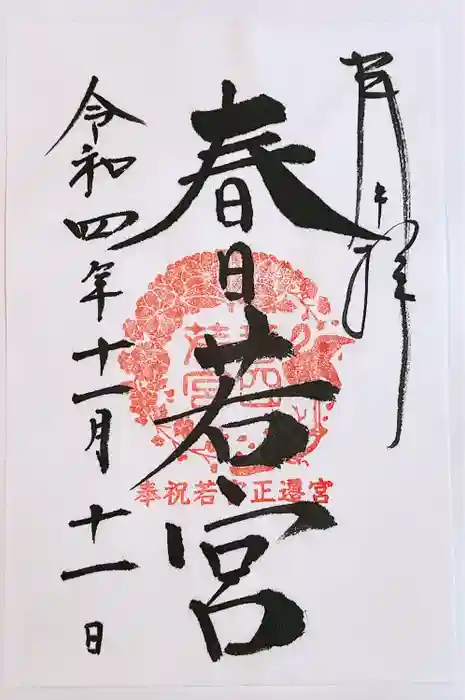 奉拝
春日若宮
令和四年十一月十一日
奉祝若宮正遷宮